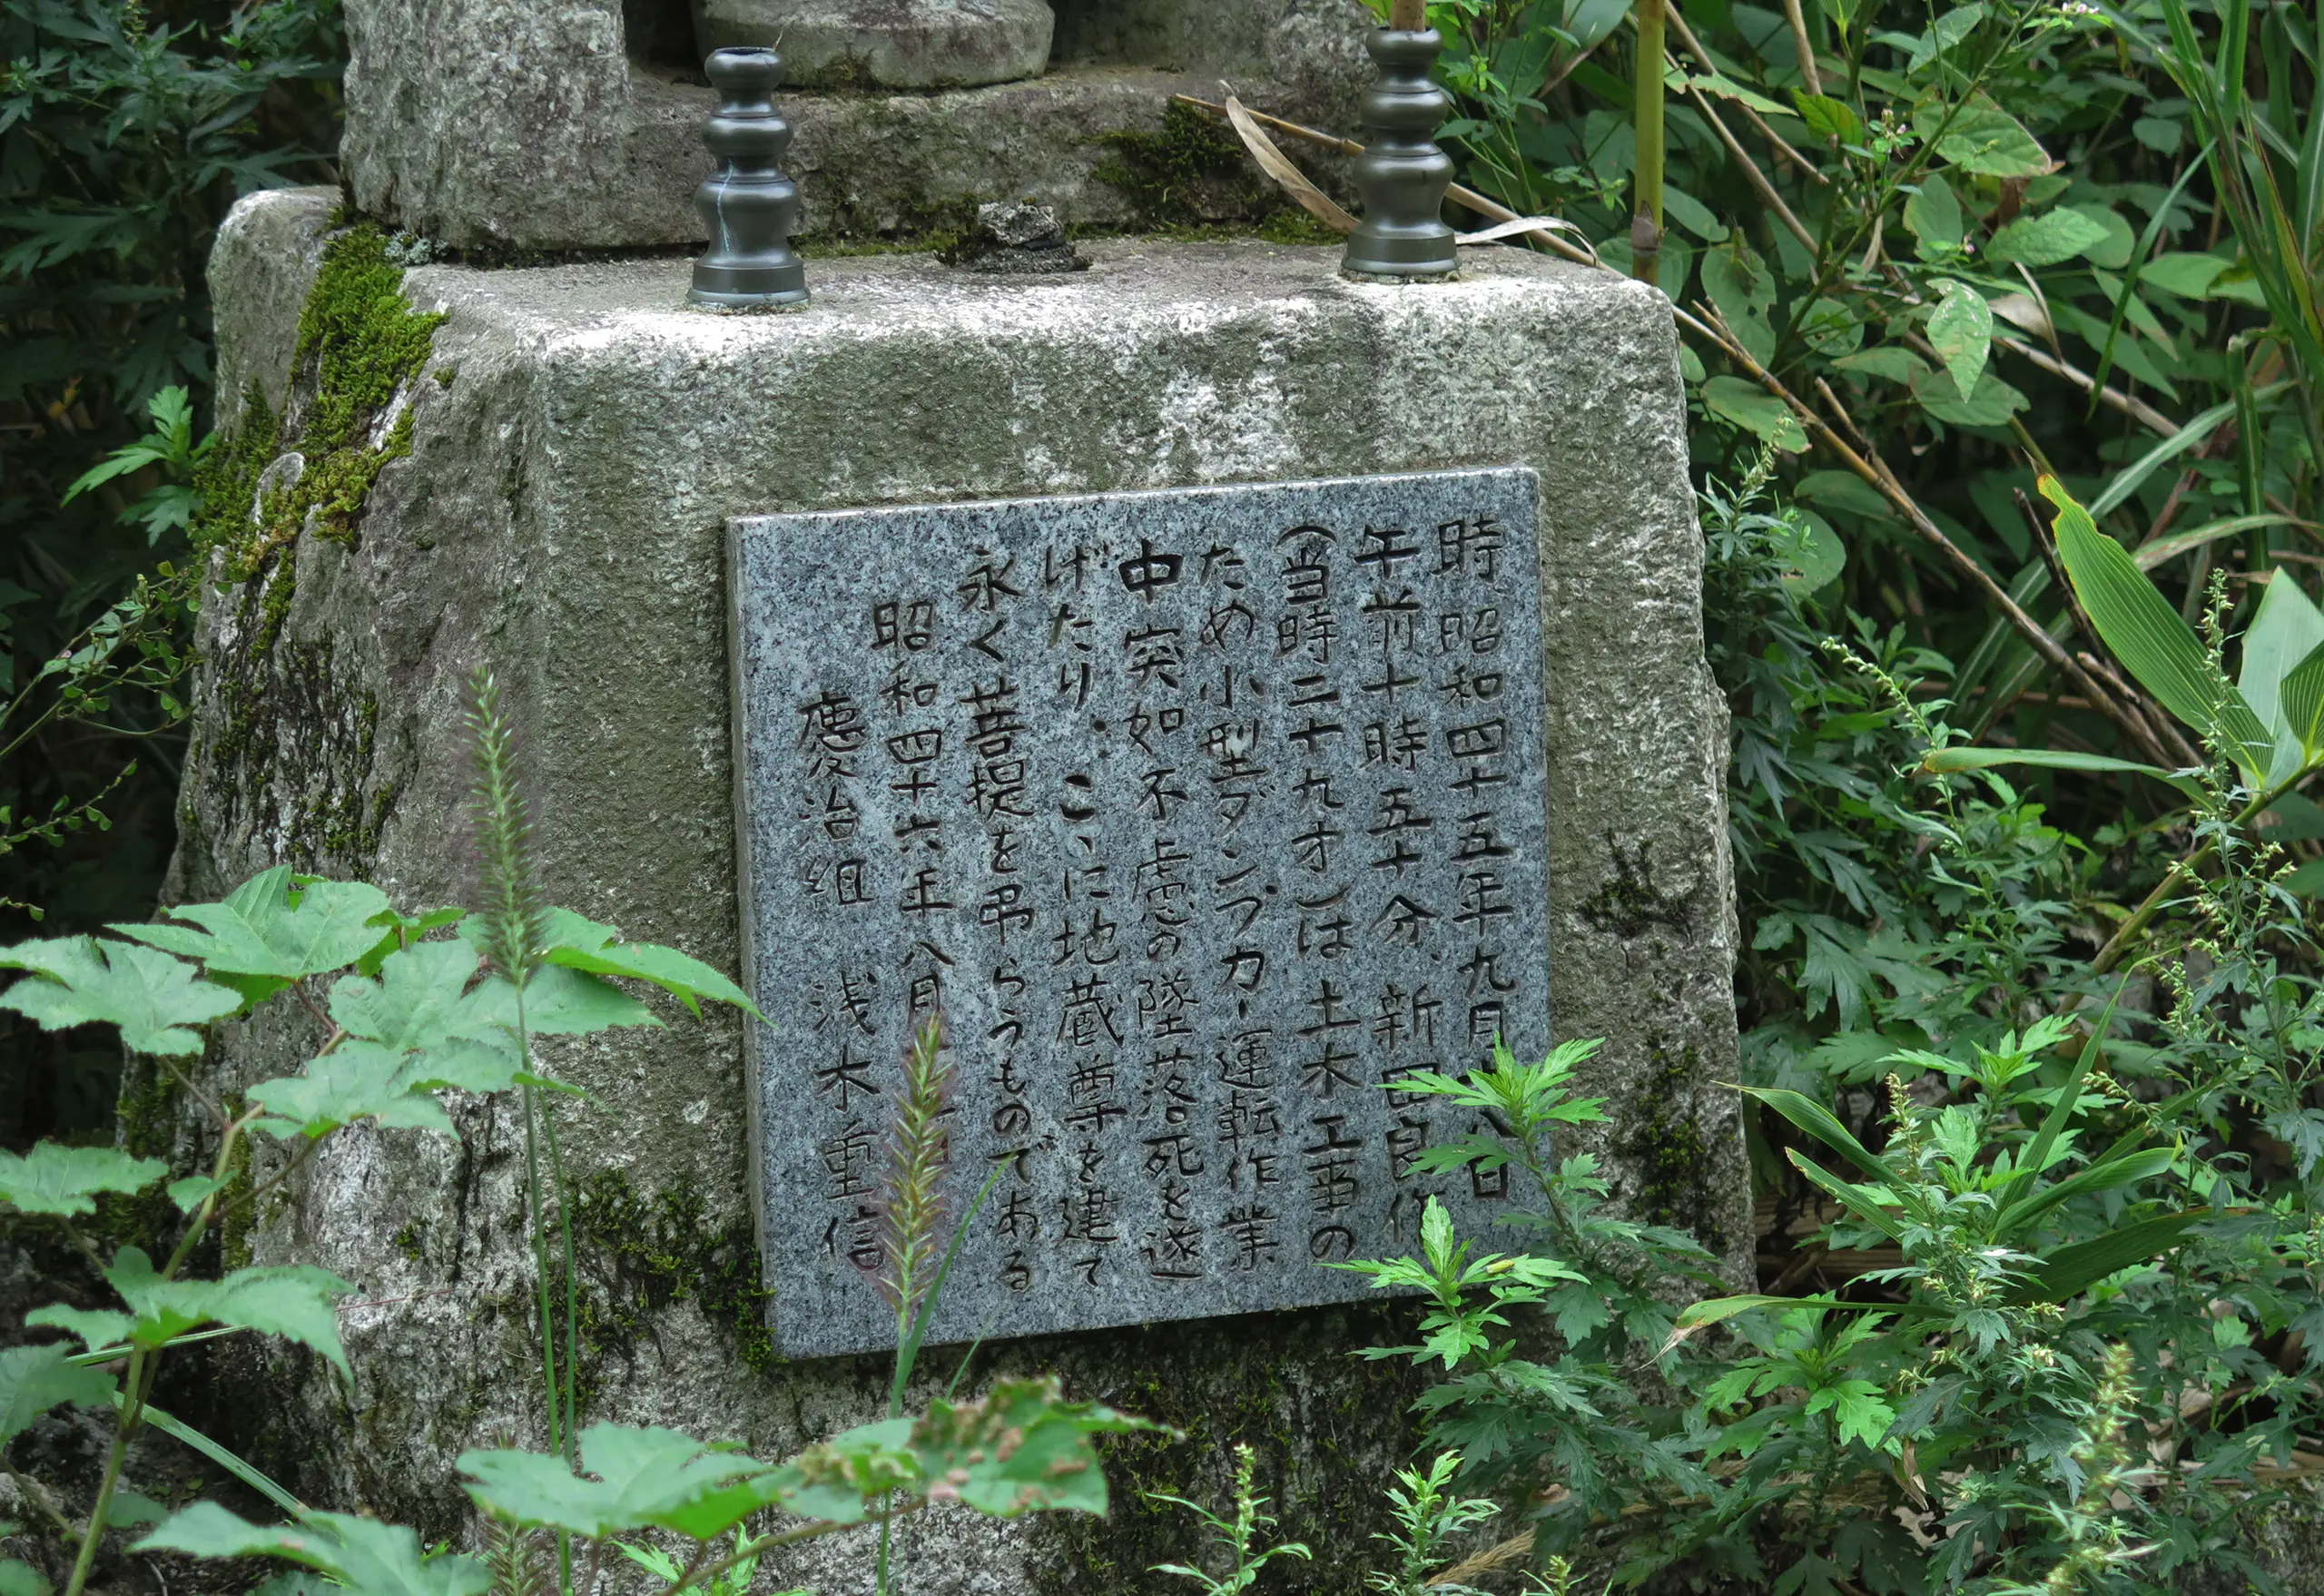 時昭和四十五年九月八日
午前十時五十分、新田良
(当時三十九才)は土木工事の
ため小型ダンプカー運転作業
中突如不慮の墜落死を遂
げたり、こゝに地蔵尊を建て
永く菩提を弔らうものである
昭和四十六年八月
慶治組　浅木重信